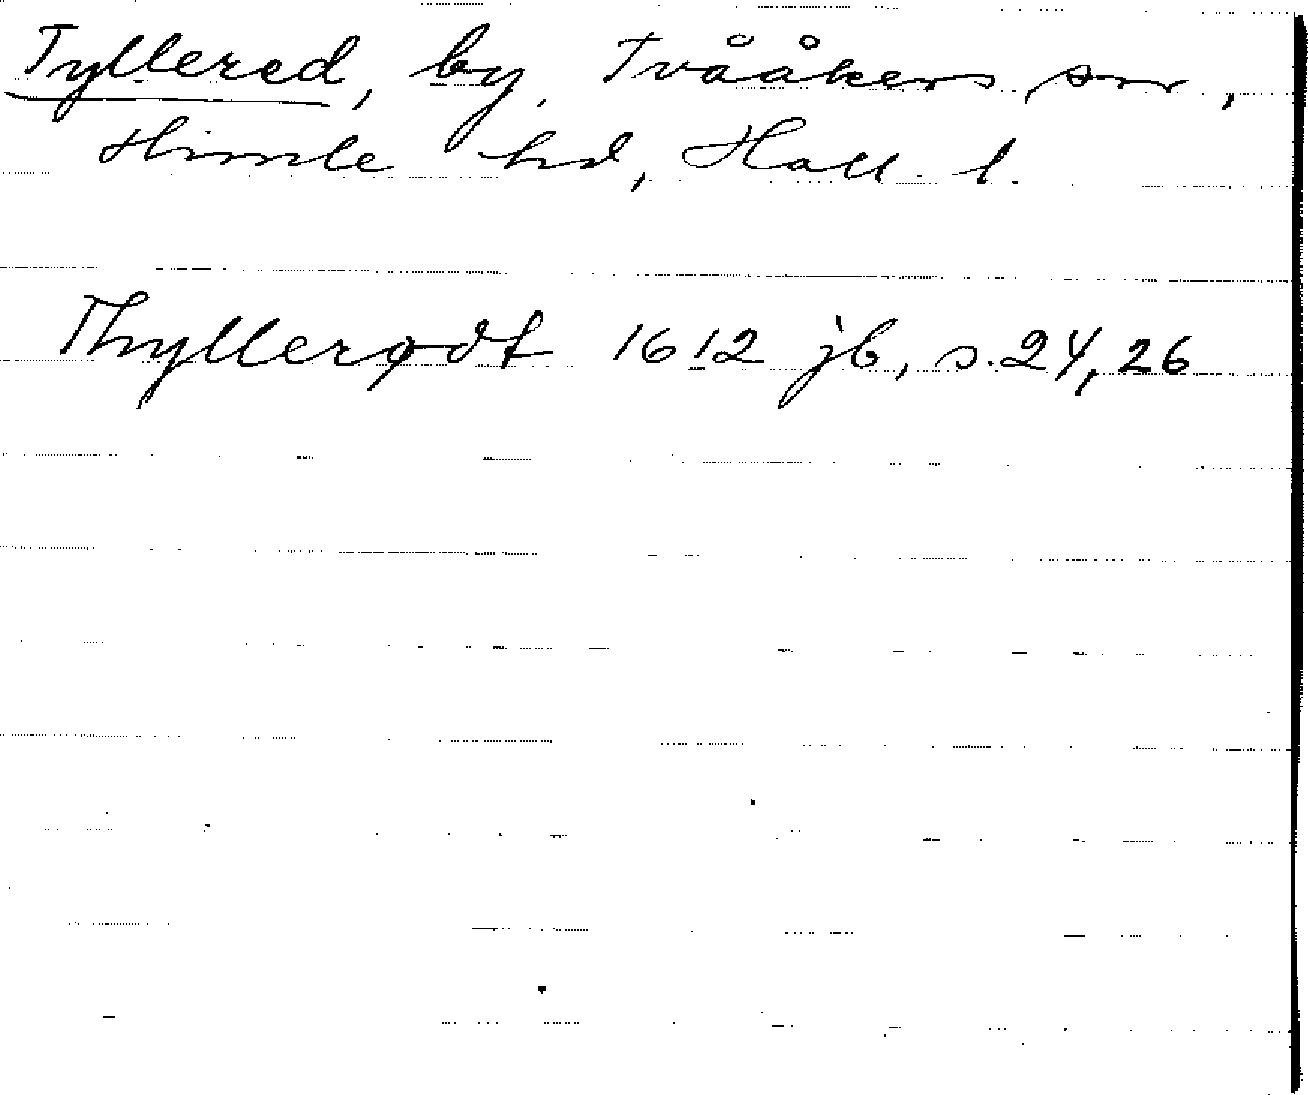 Tyllered, by, Tvååkers sn,
Himle hd, Hall. l.
Thyllerødt 1612 jb, s. 24, 26